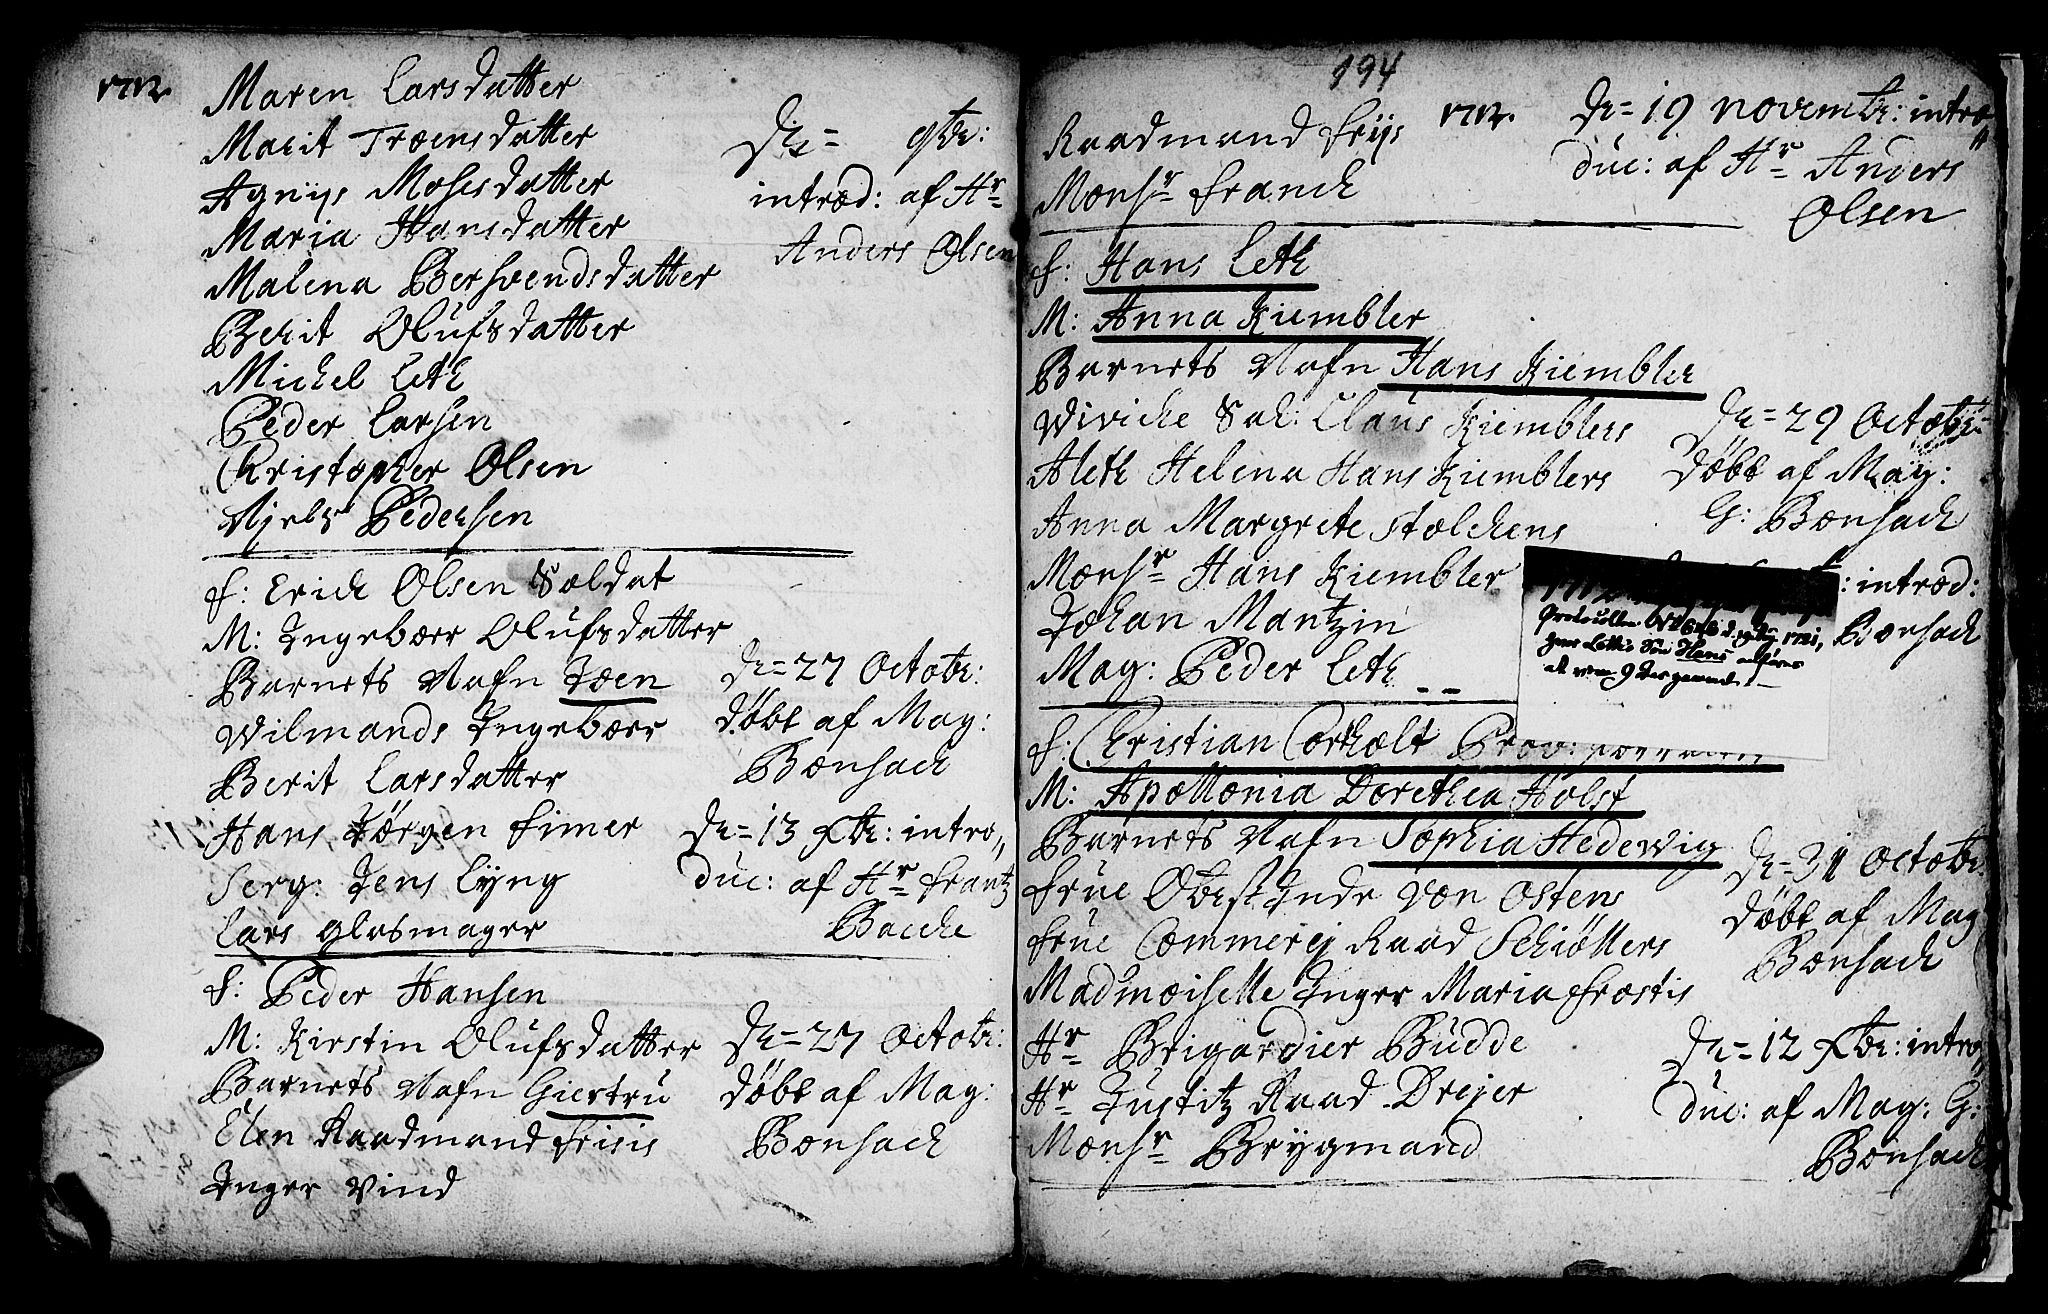 1712.
Maren Larsdatter
Marit Troensdatter
Agnijs Mosesdatter
Maria Hansdatter
Malena Bersvendsdatter
Berit Olufsdatter
Michel Leth
Peder Larsen
Christopher Olsen
Njels Pedersen
D= 9br:
introd: af Hr
Anders Olsen
F: Erich Olsen Soldat
M: Ingeborr Olufsdatter
Barnets Nafn Joen
Wilmands Ingeborr
Berit Larsdatter
Hans Jörgen Fimer
Serg: Jens Lyng
Lars glasmager
D=27 Octobr:
döbt af Mag:
Bonsach
D=13 Xbr: intro„
duc: af Hr Frantz
Bacche
F: Peder Hansen
M: Kirstin Olufsdatter
Barnets Nafn Giertru
Elen Raadmand Frisis
Inger Vind
D=27 Octobr:
döbt af Mag:
Bonsach
194
1712.
Raadmand Frijs
Monsr Franch
D=19 novembr: intro„
duc: af Hr Anders
Olsen
F: Hans Leth
M: Anna Kiembler
Barnets Nafn Hans Kiembler
Wiviche Sal: Claus Kiemblers
Aleth Helena Hans Kiemblers
Anna Margrete Stolchens
Monsr Hans Kiembler
Johan Mantzin
Mag: Peder Leth
D=29 Octobr:
döbt af Mag:
G: Bonsach
: introd:
Bonsach
1712
Hans
F: Christian Corholt
M: Apollonia Dorethea Holst
Barnets Nafn Sophia Hedewig
Frue Obristinde von Ostens
Frue Commercij Raad Schiøllers
Madmoiselle Inger Maria Frostis
Hr Brigardier Budde
Hr Justitz Raad Drejer
Monsr Brygmand
D=31 Octobr:
döbt af Mag
Bonsach
D=12 Xbr: intro„
duc: af Mag: G:
Bonsach